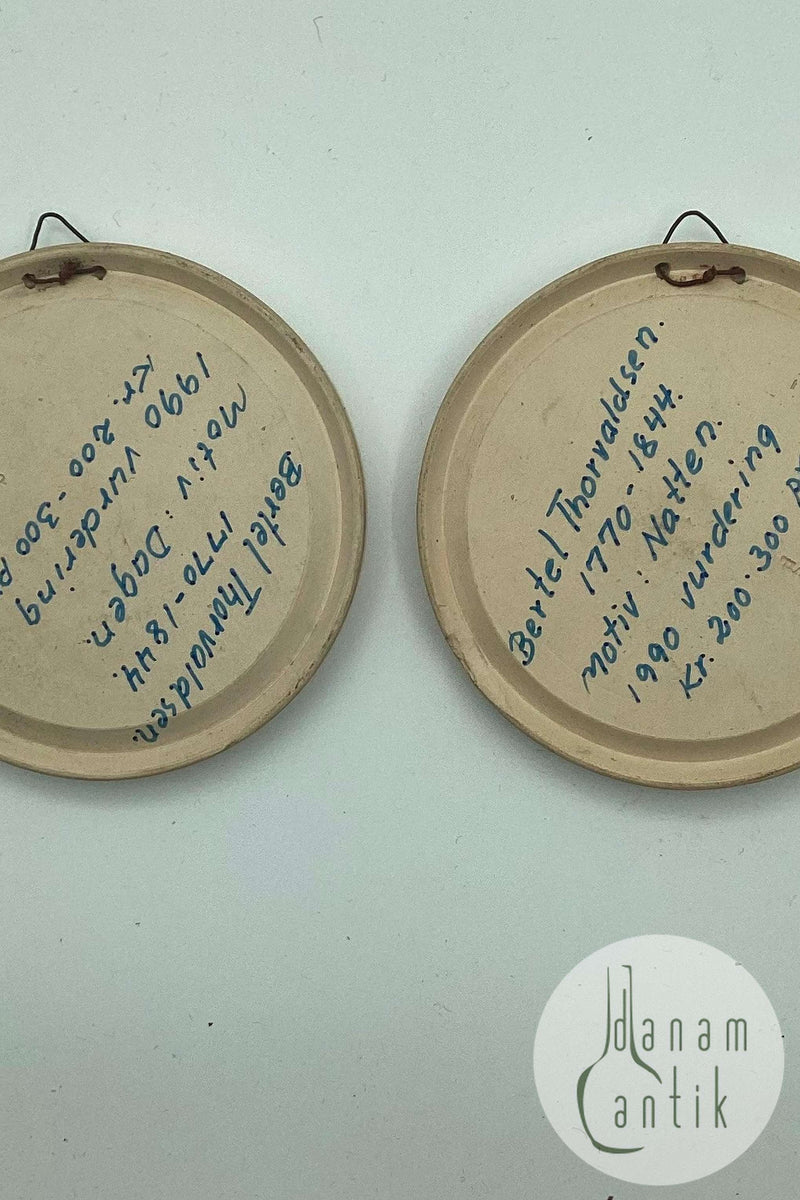 Bertel Thorvaldsen.
1770-1844.
Motiv: Dagen.
1990 vurdering
Kr. 200-300
Bertel Thorvaldsen.
1770-1844.
Motiv: Natten.
1990 vurdering
Kr. 200-300
danam
antik